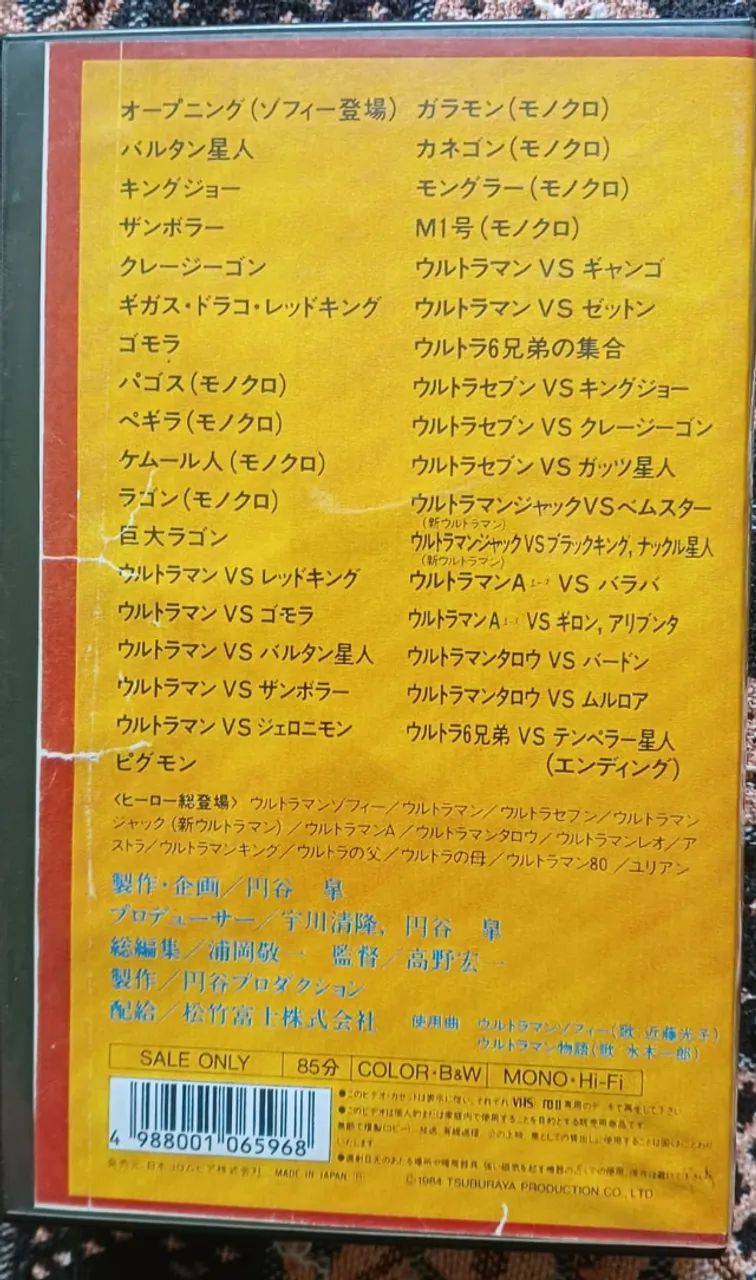 オープニング(ゾフィー登場)
バルタン星人
キングジョー
ザンボラー
クレージーゴン
ギガス・ドラコ・レッドキング
ゴモラ
パゴス(モノクロ)
ペギラ(モノクロ)
ケムール人(モノクロ)
ラゴン(モノクロ)
巨大ラゴン
ウルトラマン VS レッドキング
ウルトラマン VS ゴモラ
ウルトラマン VS バルタン星人
ウルトラマン VS ザンボラー
ウルトラマン VS ジェロニモン
ピグモン
ガラモン(モノクロ)
カネゴン(モノクロ)
モングラー(モノクロ)
M1号(モノクロ)
ウルトラマン VS ギャンゴ
ウルトラマン VS ゼットン
ウルトラ6兄弟の集合
ウルトラセブン VS キングジョー
ウルトラセブン VS クレージーゴン
ウルトラセブン VS ガッツ星人
ウルトラマンジャックVSベムスター
(新ウルトラマン)
ウルトラマンジャックVSブラックキング,ナックル星人
(新ウルトラマン)
ウルトラマンA エース VS バラバ
ウルトラマンA エース VS ギロン,アリブンタ
ウルトラマンタロウ VS バードン
ウルトラマンタロウ VS ムルロア
ウルトラ6兄弟 VS テンペラー星人
(エンディング)
〈ヒーロー総登場〉ウルトラマンゾフィー/ウルトラマン/ウルトラセブン/ウルトラマン
ジャック(新ウルトラマン)/ウルトラマンA/ウルトラマンタロウ/ウルトラマンレオ/ア
ストラ/ウルトラマンキング/ウルトラの父/ウルトラの母/ウルトラマン80/ユリアン
製作・企画/円谷 皐
プロデューサー/宇川清隆, 円谷 皐
総編集/浦岡敬一 監督/高野宏一
製作/円谷プロダクション
配給/松竹富士株式会社
使用曲 ウルトラマンゾフィー(歌 近藤光子)
ウルトラマン物語(歌 水木一郎)
SALE ONLY 85分 COLOR・B&W MONO・Hi-Fi
4 988001 065968
●このビデオ・カセットは表示に従い、それぞれVHS 専用のデッキで再生して下さい
●このビデオは個人的または家庭内で使用することを目的とする販売用商品です。
無断で複製(コピー)、放送、有線送信、公の上映、業としての貸出しに使用することは固くおことわり
いたします
●直射日光のあたる場所や暖房器具、強い磁気を起す機器の近くでの使用、保存は避けて下さい
発売元 日本コロムビア株式会社 MADE IN JAPAN
©1984 TSUBURAYA PRODUCTION CO., LTD